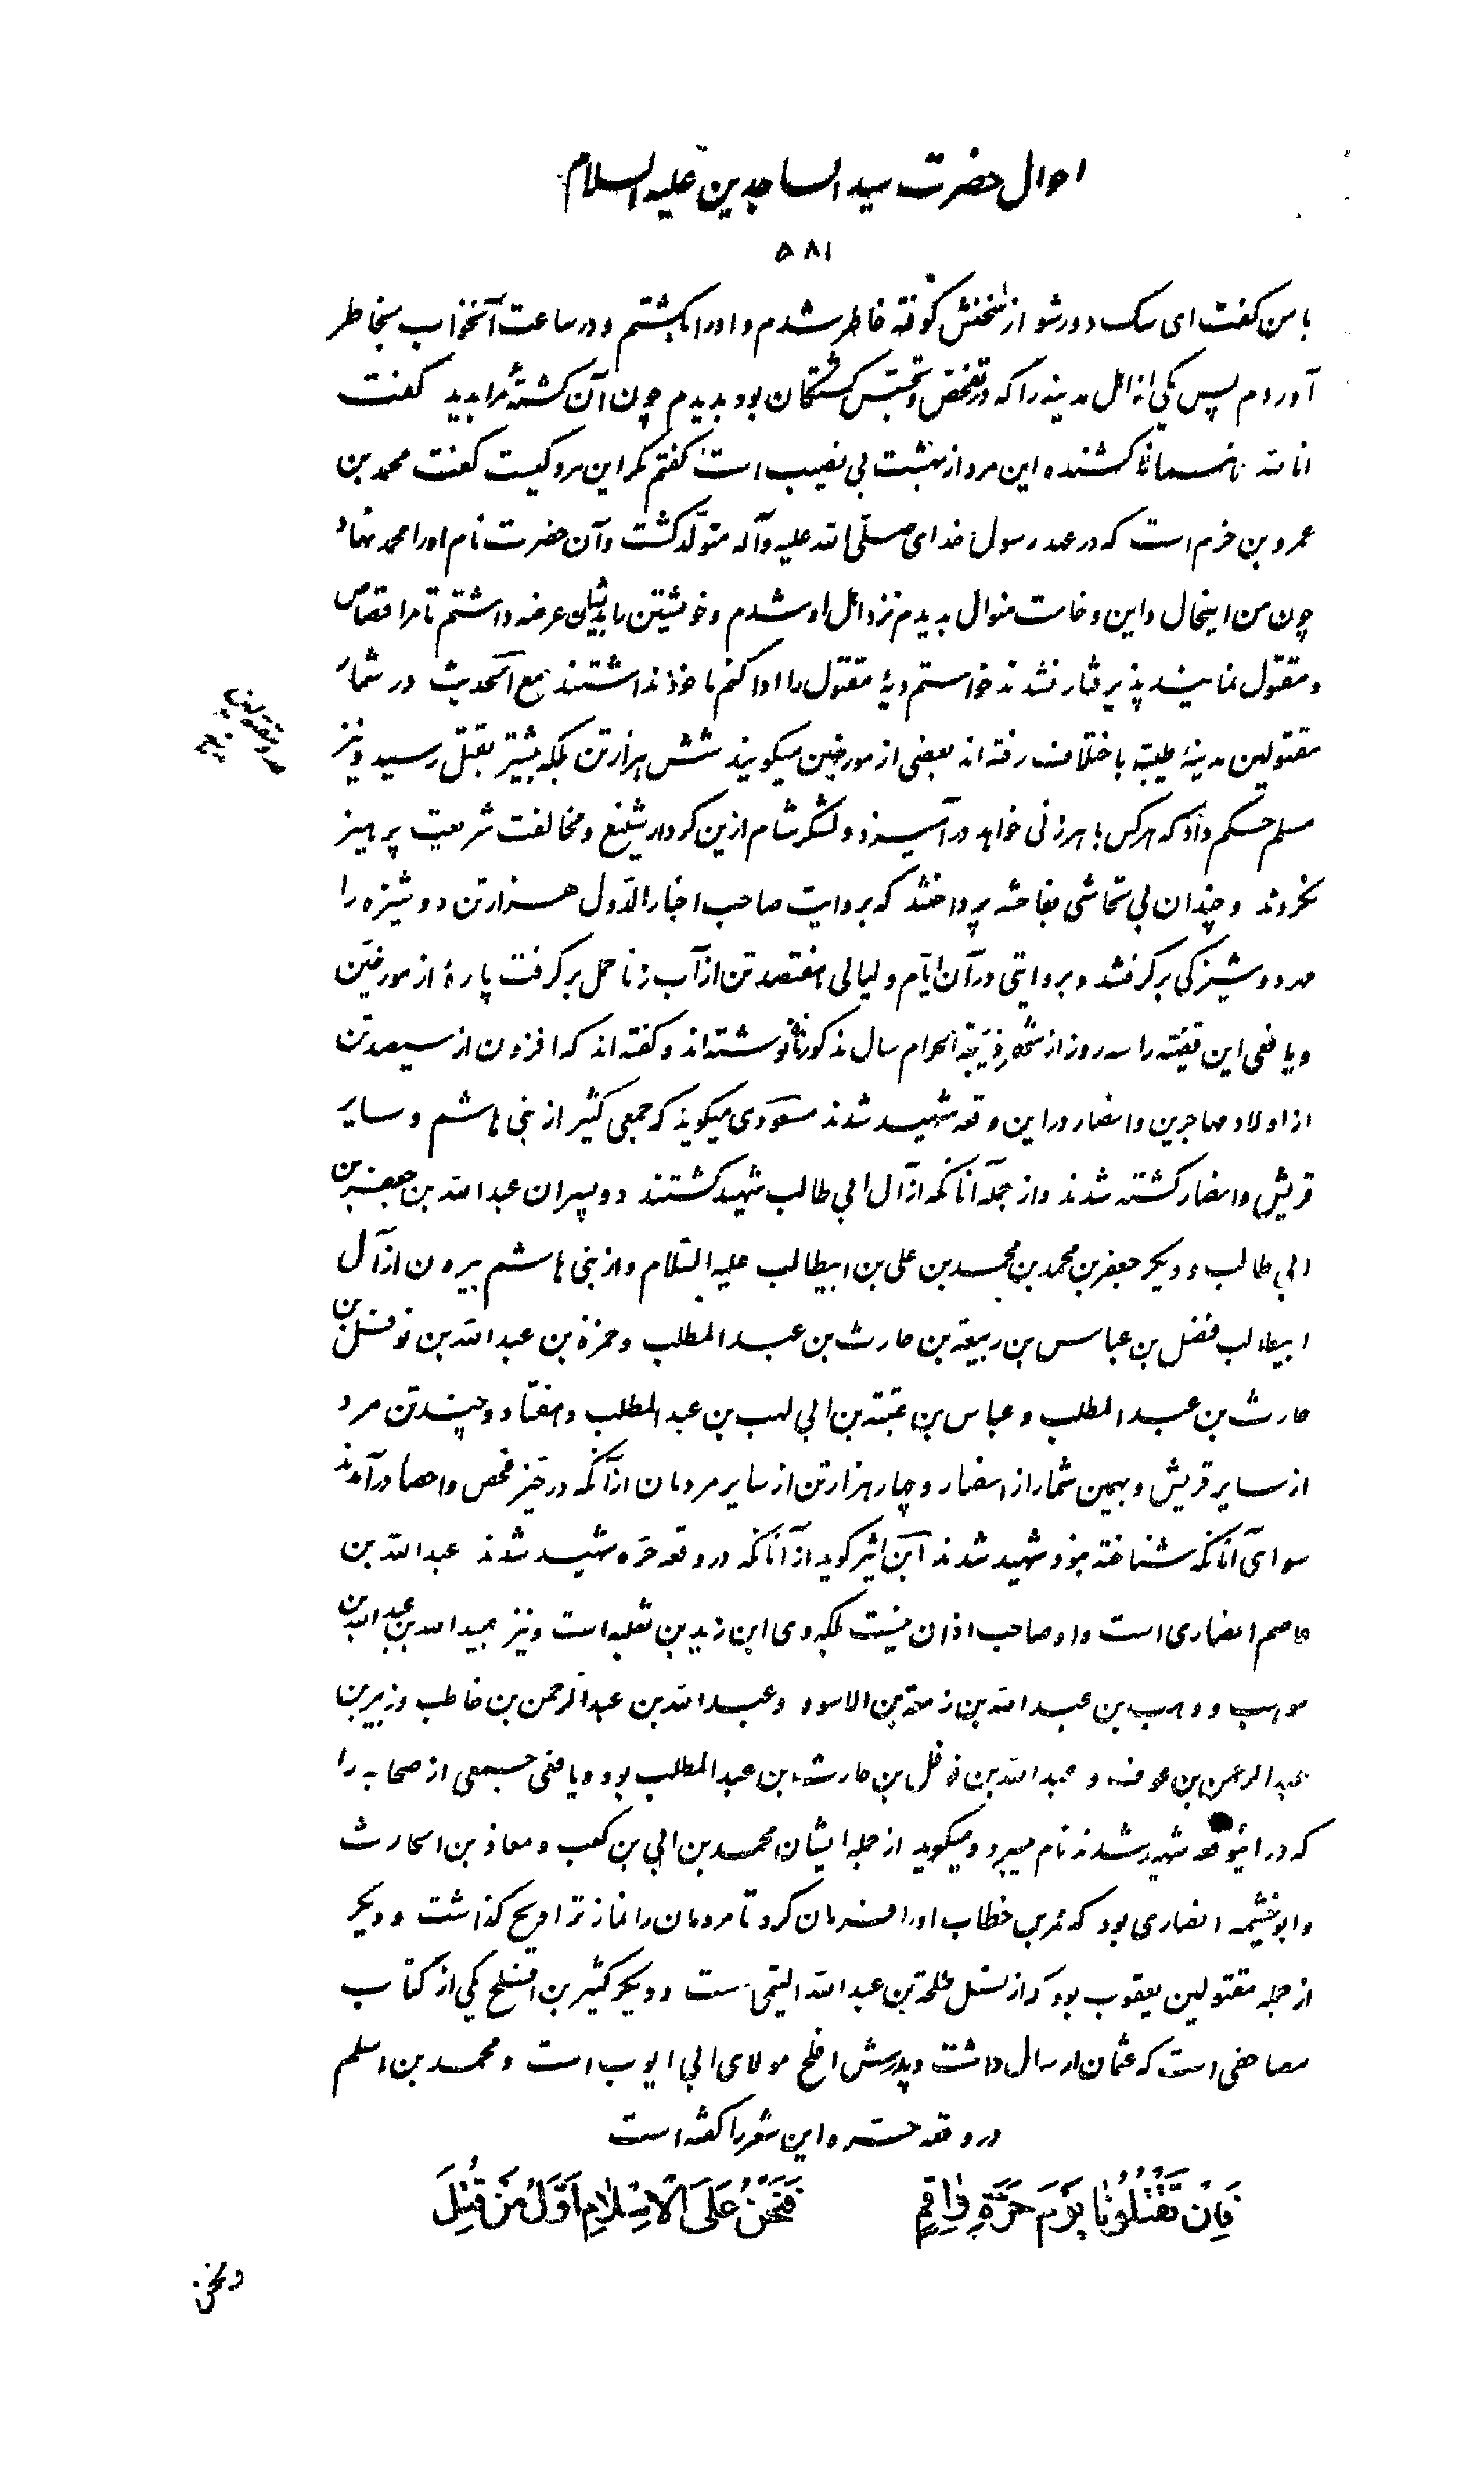 احوال حضرت سید الساجدین علیه السلام
۵۸۱
با من گفت ای سگ دور شو از سخنش کوفته خاطر شدم و او را بکشتم و در ساعت آنخواب بخاطر
آوردم پس یکی از اهل مدینه را که در تفحص و تجسس کشتگان بود بدیدم چون آن کشته را بدید گفت
انا لله همانا کشنده این مرد از بهشت بی نصیب است گفتم مگر این مرد کیست گفت محمد بن
عمرو بن حزم است که در عهد رسول خدای صلی الله علیه و آله متولد گشت و آن حضرت نام او را محمد نهاد
چون من اینحال و این وخامت منوال بدیدم نزد اهل او شدم و خویشتن را بدیشان عرضه داشتم تا مرا قصاص
مقتول نمایند پذیرفتار نشدند خواستم دیهٔ مقتول را ادا کنم ماخوذ نداشتند مع الحدیث در شمار
مقتولین مدینهٔ طیبه باختلاف رفته اند بعضی از مورخین میگویند شش هزار تن بلکه بیشتر بقتل رسید و نیز
مسلم حکم داد که هرکس با هر زنی خواهد در آمیزد و لشکر شام ازین کردار شنیع و مخالفت شریعت پرهیز
نکردند و چندان بی تحاشی بفاحشه پرداختند که بروایت صاحب اخبار الدول هزار تن دوشیزه را
مهر دوشیزگی برگرفتند و بروایتی در آن ایام و لیالی هفتصد تن از آب زنا حمل برگرفت پارهٔ از مورخین
و یافعی این قضیه را سه روز از شهر ذیحجة الحرام سال مذکور مانده نوشته اند و گفته اند که افزون از سیصد تن
از اولاد مهاجرین و انصار در این وقعه شهید شدند مسعودی میگوید که جمعی کثیر از بنی هاشم و سایر
قریش و انصار کشته شدند و از جمله آنانکه از آل ابی طالب شهید گشتند دو پسران عبدالله بن جعفر بن
ابی طالب و دیگر جعفر بن محمد بن محمد بن علی بن ابیطالب علیه السلام و از بنی هاشم بیرون از آل
ابیطالب فضل بن عباس بن ربیعة بن حارث بن عبد المطلب و حمزة بن عبد الله بن نوفل بن
حارث بن عبد المطلب و عباس بن عتبة بن ابی لهب بن عبد المطلب و هفتاد و چند تن مرد
از سایر قریش و بهمین شمار از انصار و چهار هزار تن از سایر مردمان از آنکه در حیز فحص و احصا در آمدند
سوای آنانکه شناخته نبود شهید شدند ابن اثیر گوید از آنانکه در وقعه حره شهید شدند عبدالله بن
عاصم انصاری است و او صاحب اذان نیست بلکه وی ابن زید بن ثعلبه است و نیز عبیدالله بن عبدالله بن
موهب و وهب بن عبدالله بن زمعة بن الاسود و عبدالله بن عبدالرحمن بن حاطب و زبیر بن
عبدالرحمن بن عوف و عبدالله بن نوفل بن حارث بن عبدالمطلب بود و یافعی جمعی از صحابه را
که در اینوقعه شهید شدند نام میبرد و میگوید از جمله ایشان محمد بن ابی بن کعب و معاذ بن الحارث
و ابو خیثمه انصاری بود که عمر بن خطاب او را فرمان کرد تا مردمان را نماز تراویح گذاشت و دیگر
از جمله مقتولین یعقوب بود که از نسل طلحة بن عبدالله التیمی است و دیگر کثیر بن افلح یکی از کتاب
مصاحفی است که عثمان ارسال داشت و پدرش افلح مولای ابی ایوب است و محمد بن اسلم
در وقعه حره این شعر را گفته است
فَاِنْ تَقْتُلُونٰا یَوْمَ حَرَّةِ وٰاقِمٍ فَنَحْنُ عَلَی الْاِسْلٰامِ اَوَّلُ مَنْ قُتِلَ
و نحن